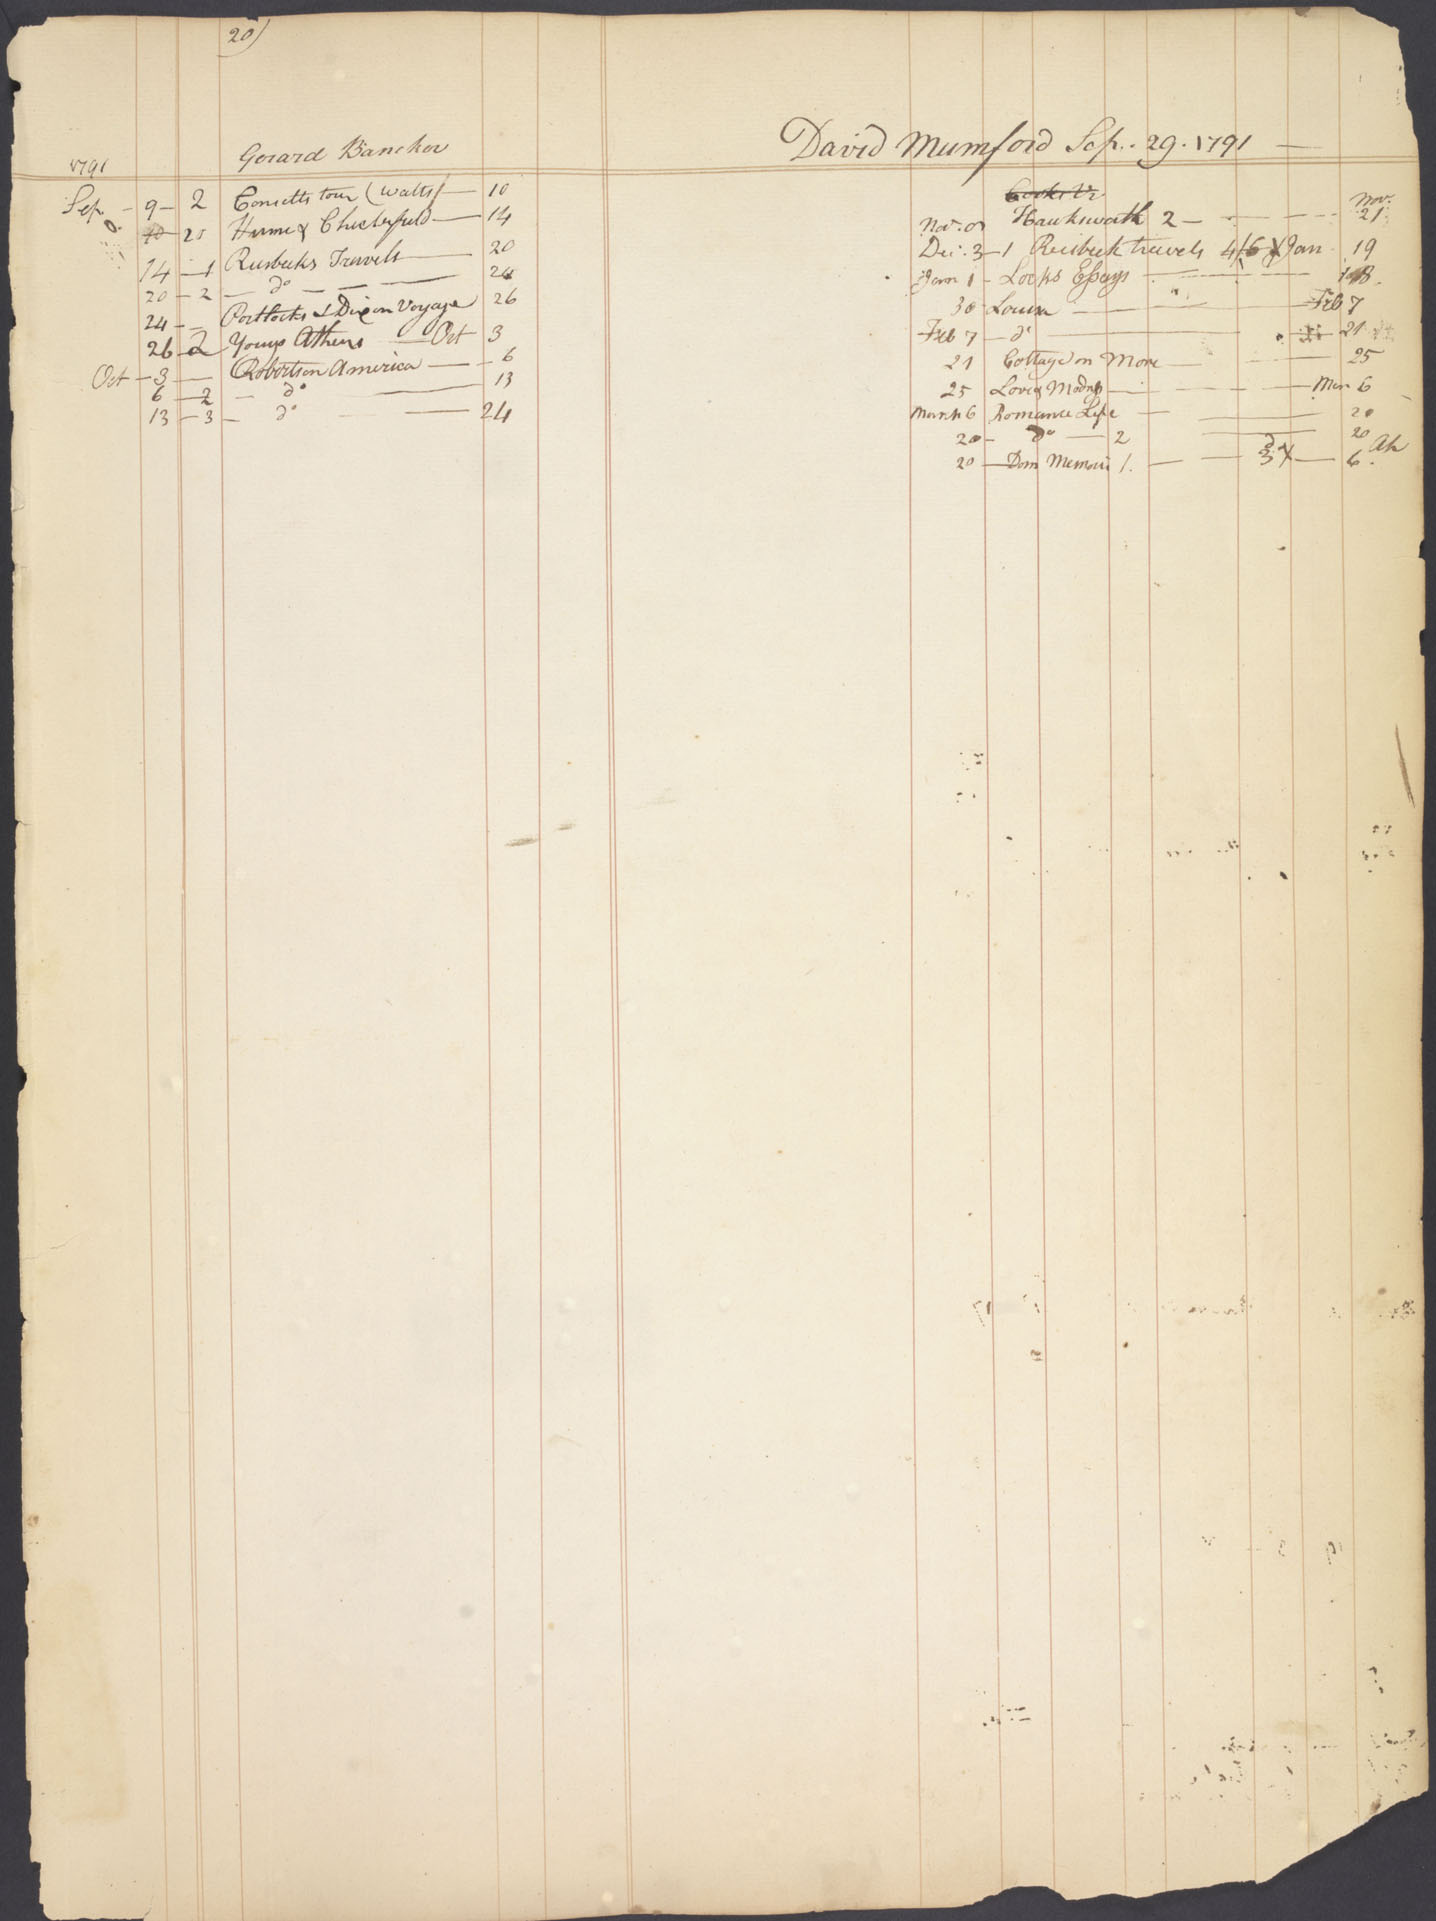 20)
Gerard Bancker
1791
Sep. - 9 - 2 Consetts tour (Watts) — 10
10 - 20 Hume & Chesterfield — 14
14 - 1 Riesbecks Travels — 20
20 - 2 — do — — — 24
24 - — Portlocks & Dixon Voyage 26
26 - 2 Youngs Athens — Oct 3
Oct - 3 — Robertson America — - 6
6 - 2 - do — 13
13 - 3 - do — — 24
David Mumford Sep. . 29 . 1791 —
Cooks Vs
Nov.
Nov. Hauksworth 2 — 21
Dec. 3 - 1 Reisbeck travels 4/6 X Jan 19
Jan 1 - Locks Essays — 18
30 Louisa — Feb 7
Feb 7 — do — 21
21 Cottage on Moor — 25
25 Loves Modrn — Mar 6
March 6 Romance Life — 20
20 - do — 2 — 20
20 — Dom Memoir 1. — — 3 X — 6